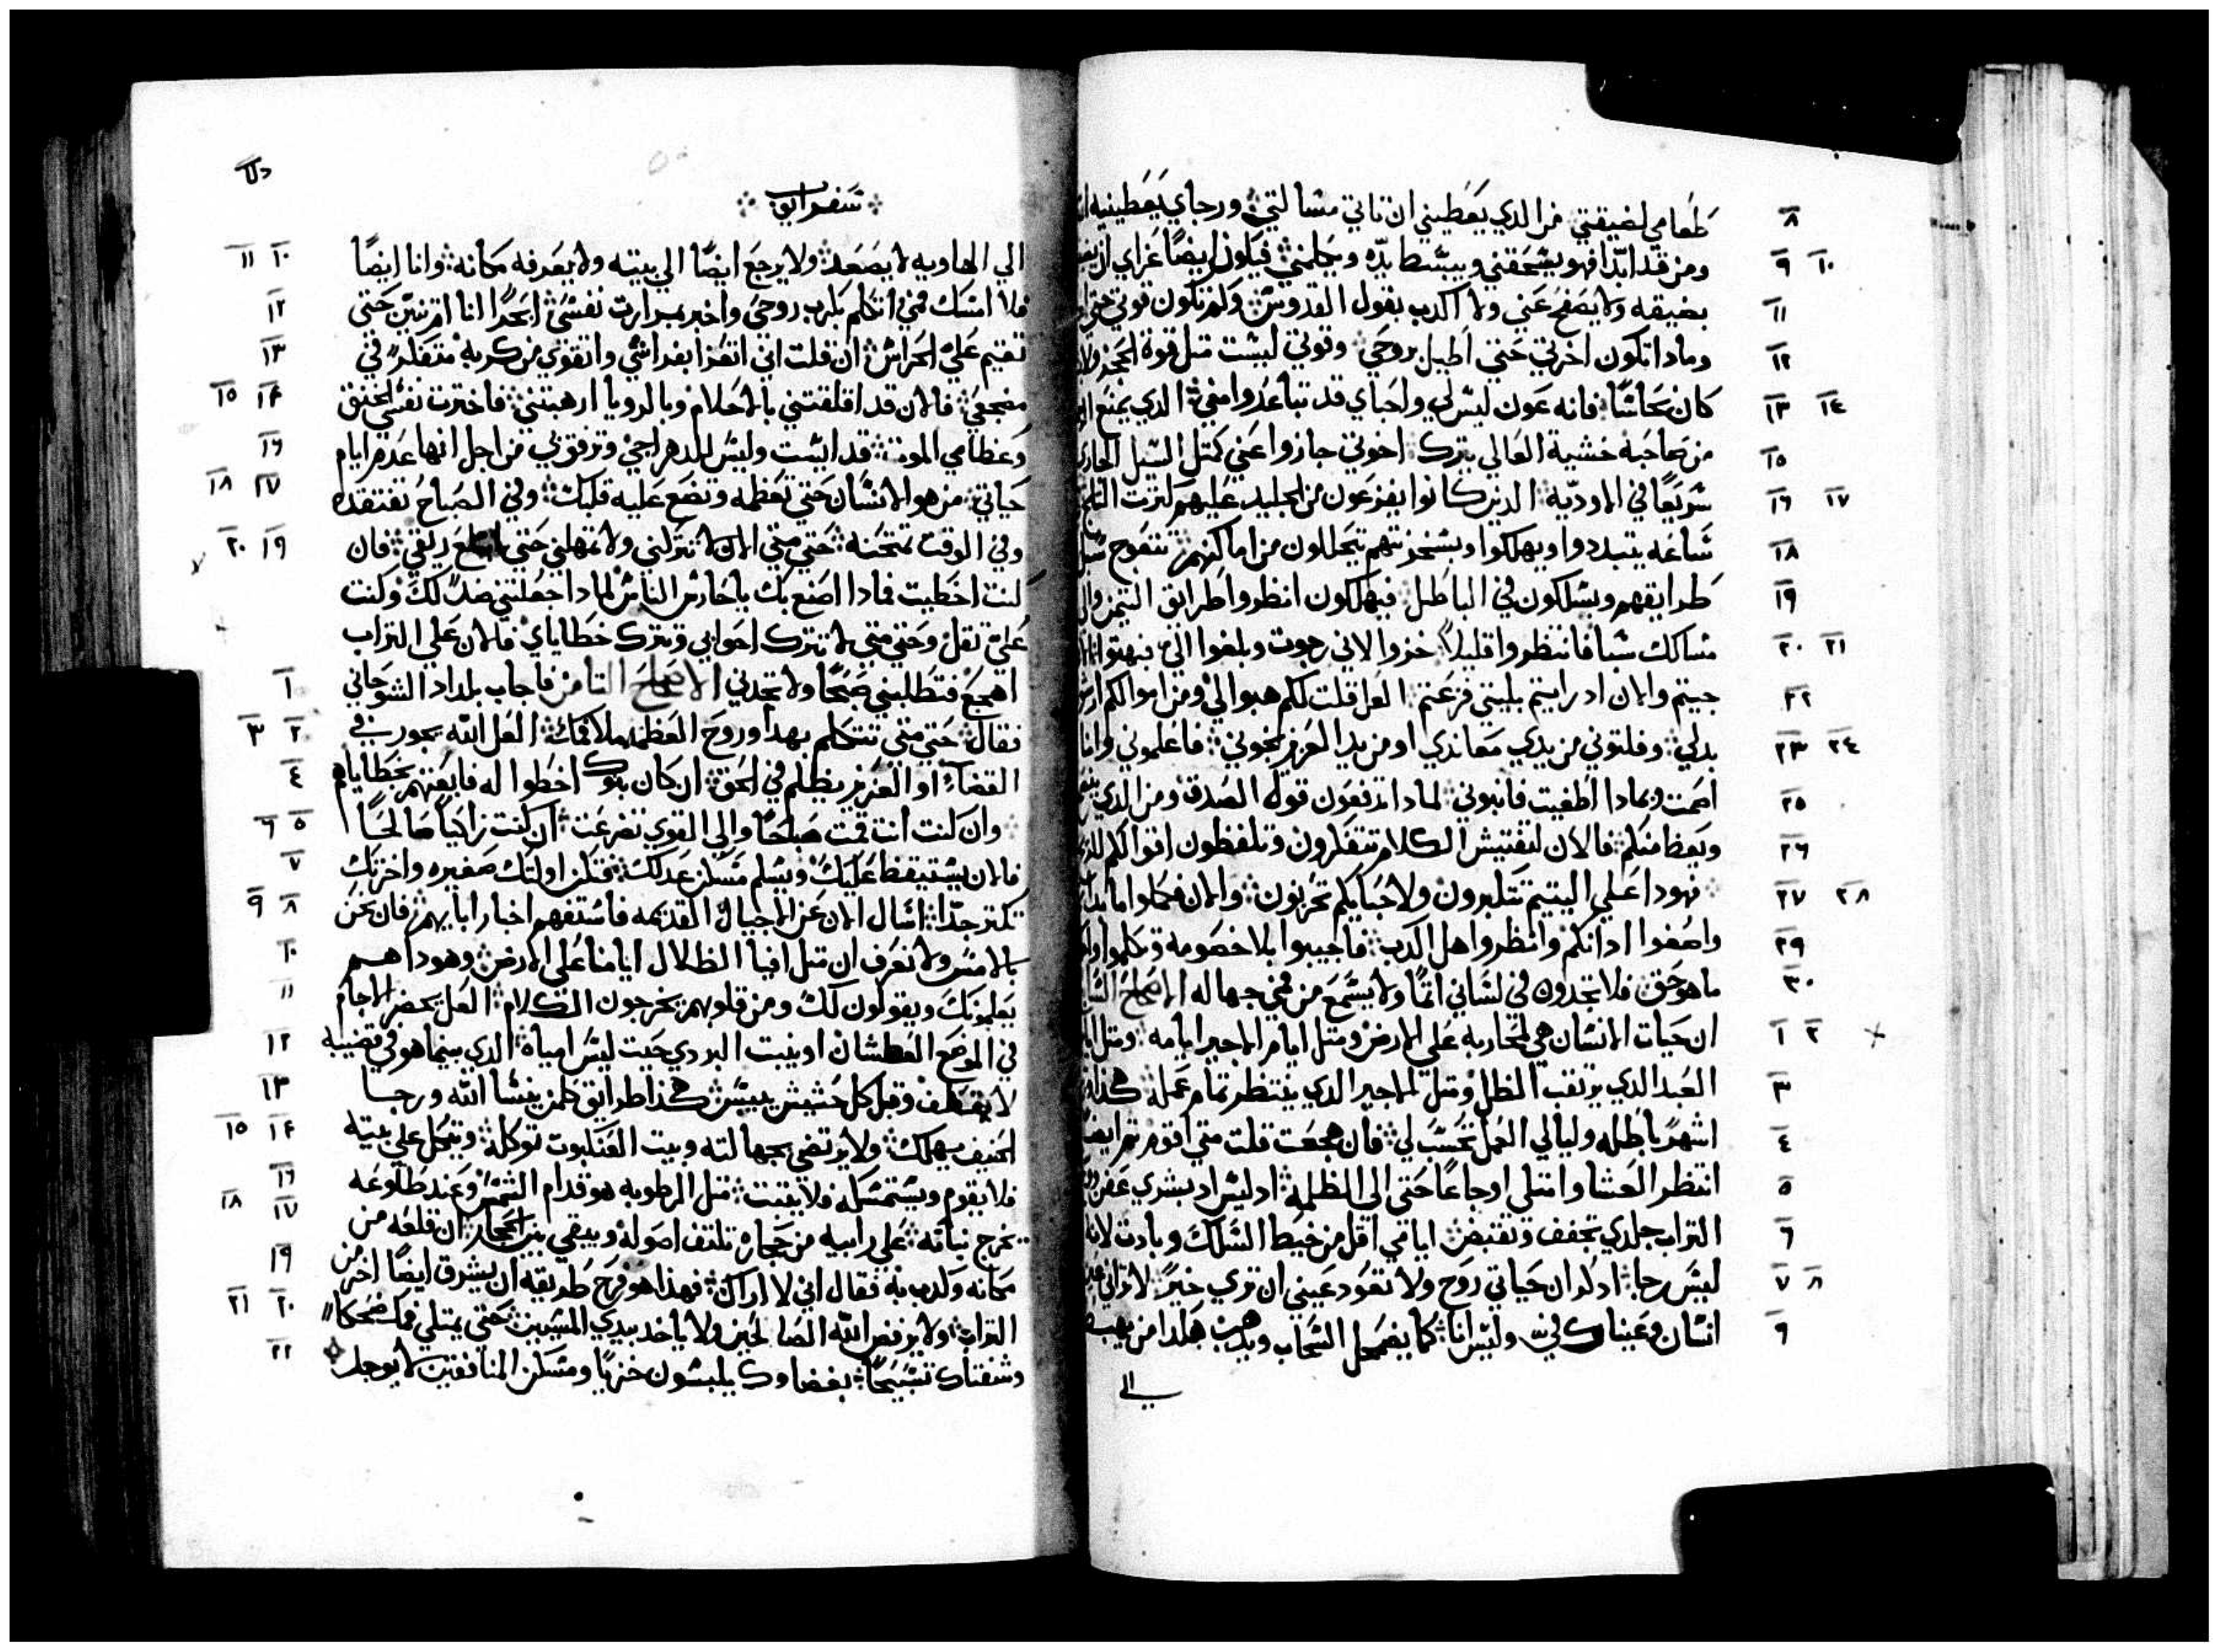 طعامي لضيقتي من الدي يعطيني ان تاتي مسالتي ورجاي يعطينيه
ومن قد ابدا فهو يسحقني ويبسط يده ويحلمني فيكون ايضا عزاي ان
بضيقه ولا يصفح عني ولا اكدب بقول القدوس ولم تكون قوتي حتي
ومادا تكون اخرتي حتي اطيل بروحي وقوتي ليست متل قوة الحجر ولا
كان نحاسا فانه عون ليس لي واحباي قد تباعدوا مني الدي يمنع
من صاحبه خشية العالي يترك اخوتي جازوا عني كمتل السيل الجاري
سريعا في الاوديه الدين كانوا يفزعون من الجليد عليهم كترت التلج
ساعه يتبددوا ويهلكوا وبسخزنتهم يتحللون من اماكنهم تتعوج سبل
طرايقهم ويسلكون في الباطل فيهلكون انظروا طرايق التيمن والي
مسالك سبا فانتظروا قليلا خزوا لاني رجوت وبلغوا الي فبهتوا
جيتم والان اد رايتم بليتي فزعتم العل قلت لكم هبوا لي ومن اموالكم
بدلي وفلتوني من يدي معاندي او من يد العزيز نجوني فاعلموني وانا
اصمت وبمادا اطغيت فانبوني لمادا ترفعون قول الصدق ومن الدي
ويعظ منكم فالان لتفتيش الكلام تتفكرون وتلفظون اقوالكم
فهودا علي اليتيم تتكبرون ولاحبايكم تحزنون والان فكملوا ما
واصغوا ادانكم وانظروا هل اكدب فاجيبوا بلا خصومه وتكلموا
ما هو حق فلا تجدوه في لساني اتما ولا يسمع من فمي جهاله الاصحاح
ان حيات الانسان هي محاربه علي الارض ومتل ايام الاجير ايامه ومتل
العبد الدي يرتقب الظل ومتل الاجير الدي ينتظر تمام عمله هكدا
اشهر باطله وليالي العمل تحسب لي فان هجعت قلت متي اقوم تم ايضا
انتظر العشا وامتلي اوجاعا حتي الي الظلمه اد ليس بشري عفن
التراب جلدي تجفف وتقتبض ايامي اقل من خيط السلك وبادت لانه
ليس رجا ادكر ان حياتي روح ولا تعود عيني ان تري خير لا تراني عين
انسان وعيناك فيّ وليس انا كما يضمحل السحاب ويدهب هكدا من يهبط
الي
سفر ايوب
الي الهاويه لا يصعد ولا يرجع ايضا الي بيته ولا يعرفه مكانه وانا ايضا
فلا امسك فمي اتكلم بكرب روحي واخبر بمرارت نفسي ابحرا انا ام تنين حتي
تقيم علي الحراس ان قلت اني اتعزا بفراشي واتقوي من كربه متفكر في
مضجعي فالان قد اقلقتني بالاحلام وبالرويا ارهبتني فاخترت نفسي الخنق
وعظامي الموت قد ايست وليس للدهر احيي وترفق بي من اجل انها عدم ايام
حياتي من هو الانسان حتي تعظمه وتضع عليه قلبك وفي الصباح تفتقده
وفي الوقت تمتحنه حتي متي الان لا تتركني ولا تمهلني حتي ابلع ريقي فان
كنت اخطيت فمادا اصنع بك يا حارس الناس لمادا جعلتني ضد لك وكنت
علي تقل وحتي متي لا تترك احوابي وتترك خطاياي فالان علي التراب
اهجع فتطلبني صبحا ولا تجدني الاصحاح التامن فاجاب بلداد الشوحاني
فقال حتي متي تتكلم بهدا وروح العظمه ملا فمك العل الله يجور في
القضاء او العزيز يظلم في الحق ان كان بنوك اخطوا له فابعتهم بخطاياهم
وان كنت انت قمت صباحا والي القوي تضرعت ان كنت زاكيا صالحا
فالان يستيقظ عليك ويسلم مسكن عدلك فتكن اولتك صغيره واخرتك
تكتر جدا اسال الان عن الاجيال القديمه فاستفهم اخبار ابايهم فان نحن
بالامس ولا نعرف ان متل افيا الظلال ايامنا علي الارض وهودا هم
يعلمونك ويقولون لك ومن قلوبهم يخرجون الكلام العل تخضر الاجام
في الموضع العطشان او ينبت البردي حيت ليس امياه الدي بينما هو في قضيبه
لا يقتطف وقبل كل حشيش ييبس هكدا طرايق كلمن ينسا الله ورجا
الحنيف يهلك ولا يرتضي بجهالته وبيت العنكبوت توكله ويتكل علي بيته
فلا يقوم ويستمسكه فلا يتبت متل الرطوبه هو قدام الشمس وعند طلوعه
يخرج نباته علي رابيه من حجاره تلتف اصوله ويبقي بين الحجار ان قلعه من
مكانه وكدب به فقال اني لا اراك فهدا هو فرح طريقه ان يشرق ايضا اخر من
التراب ولا يرفض الله الصالحين ولا ياخد بيدي المسيين حتي يمتلي فمك ضحكا
وشفتاك تسبيحا بغضاوك يلبسون خزيا ومسكن المنافقين لا يوجد